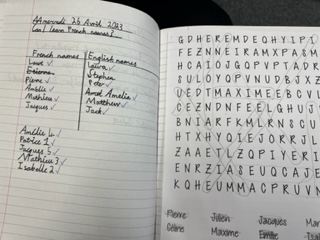 Mercredi 26 Avril 2023
Can I learn French names?
French names English names
Laure Laura
Étienne Stephen
Pierre Peter
Amélie Amelia
Mathieu Matthew
Jacques Jack
Amélie 4
Patrice 1
Jacques 5
Mathieu 3
Isabelle 2
G D H E R E M D E Q H Y I P I
F E Z N N E I R A M X P A S M
H C A I O J G Q P V P T A D R
S U L O Y Q P V N U D B J X Z
U E D T M A X I M E E B C V L
C E Z N D N F E E L Q H U J
B N I A R F K M L R N S C U
H T X H Y Q I E J O R R J L
Z A A E T L Z Q P I Y E R I
E N R Z I A S E U Q C A J E
K Q H E U M M A C P R U V N
Pierre Julien Jacques Mar
Céline Maxime Émilie